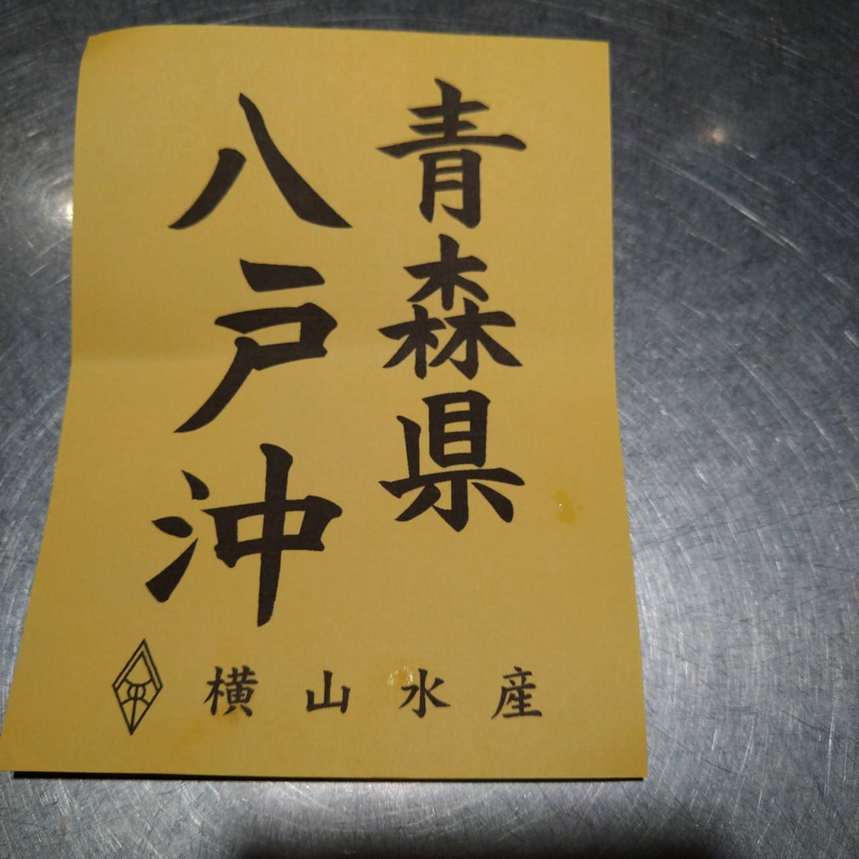 青森県
八戸沖
横山水産